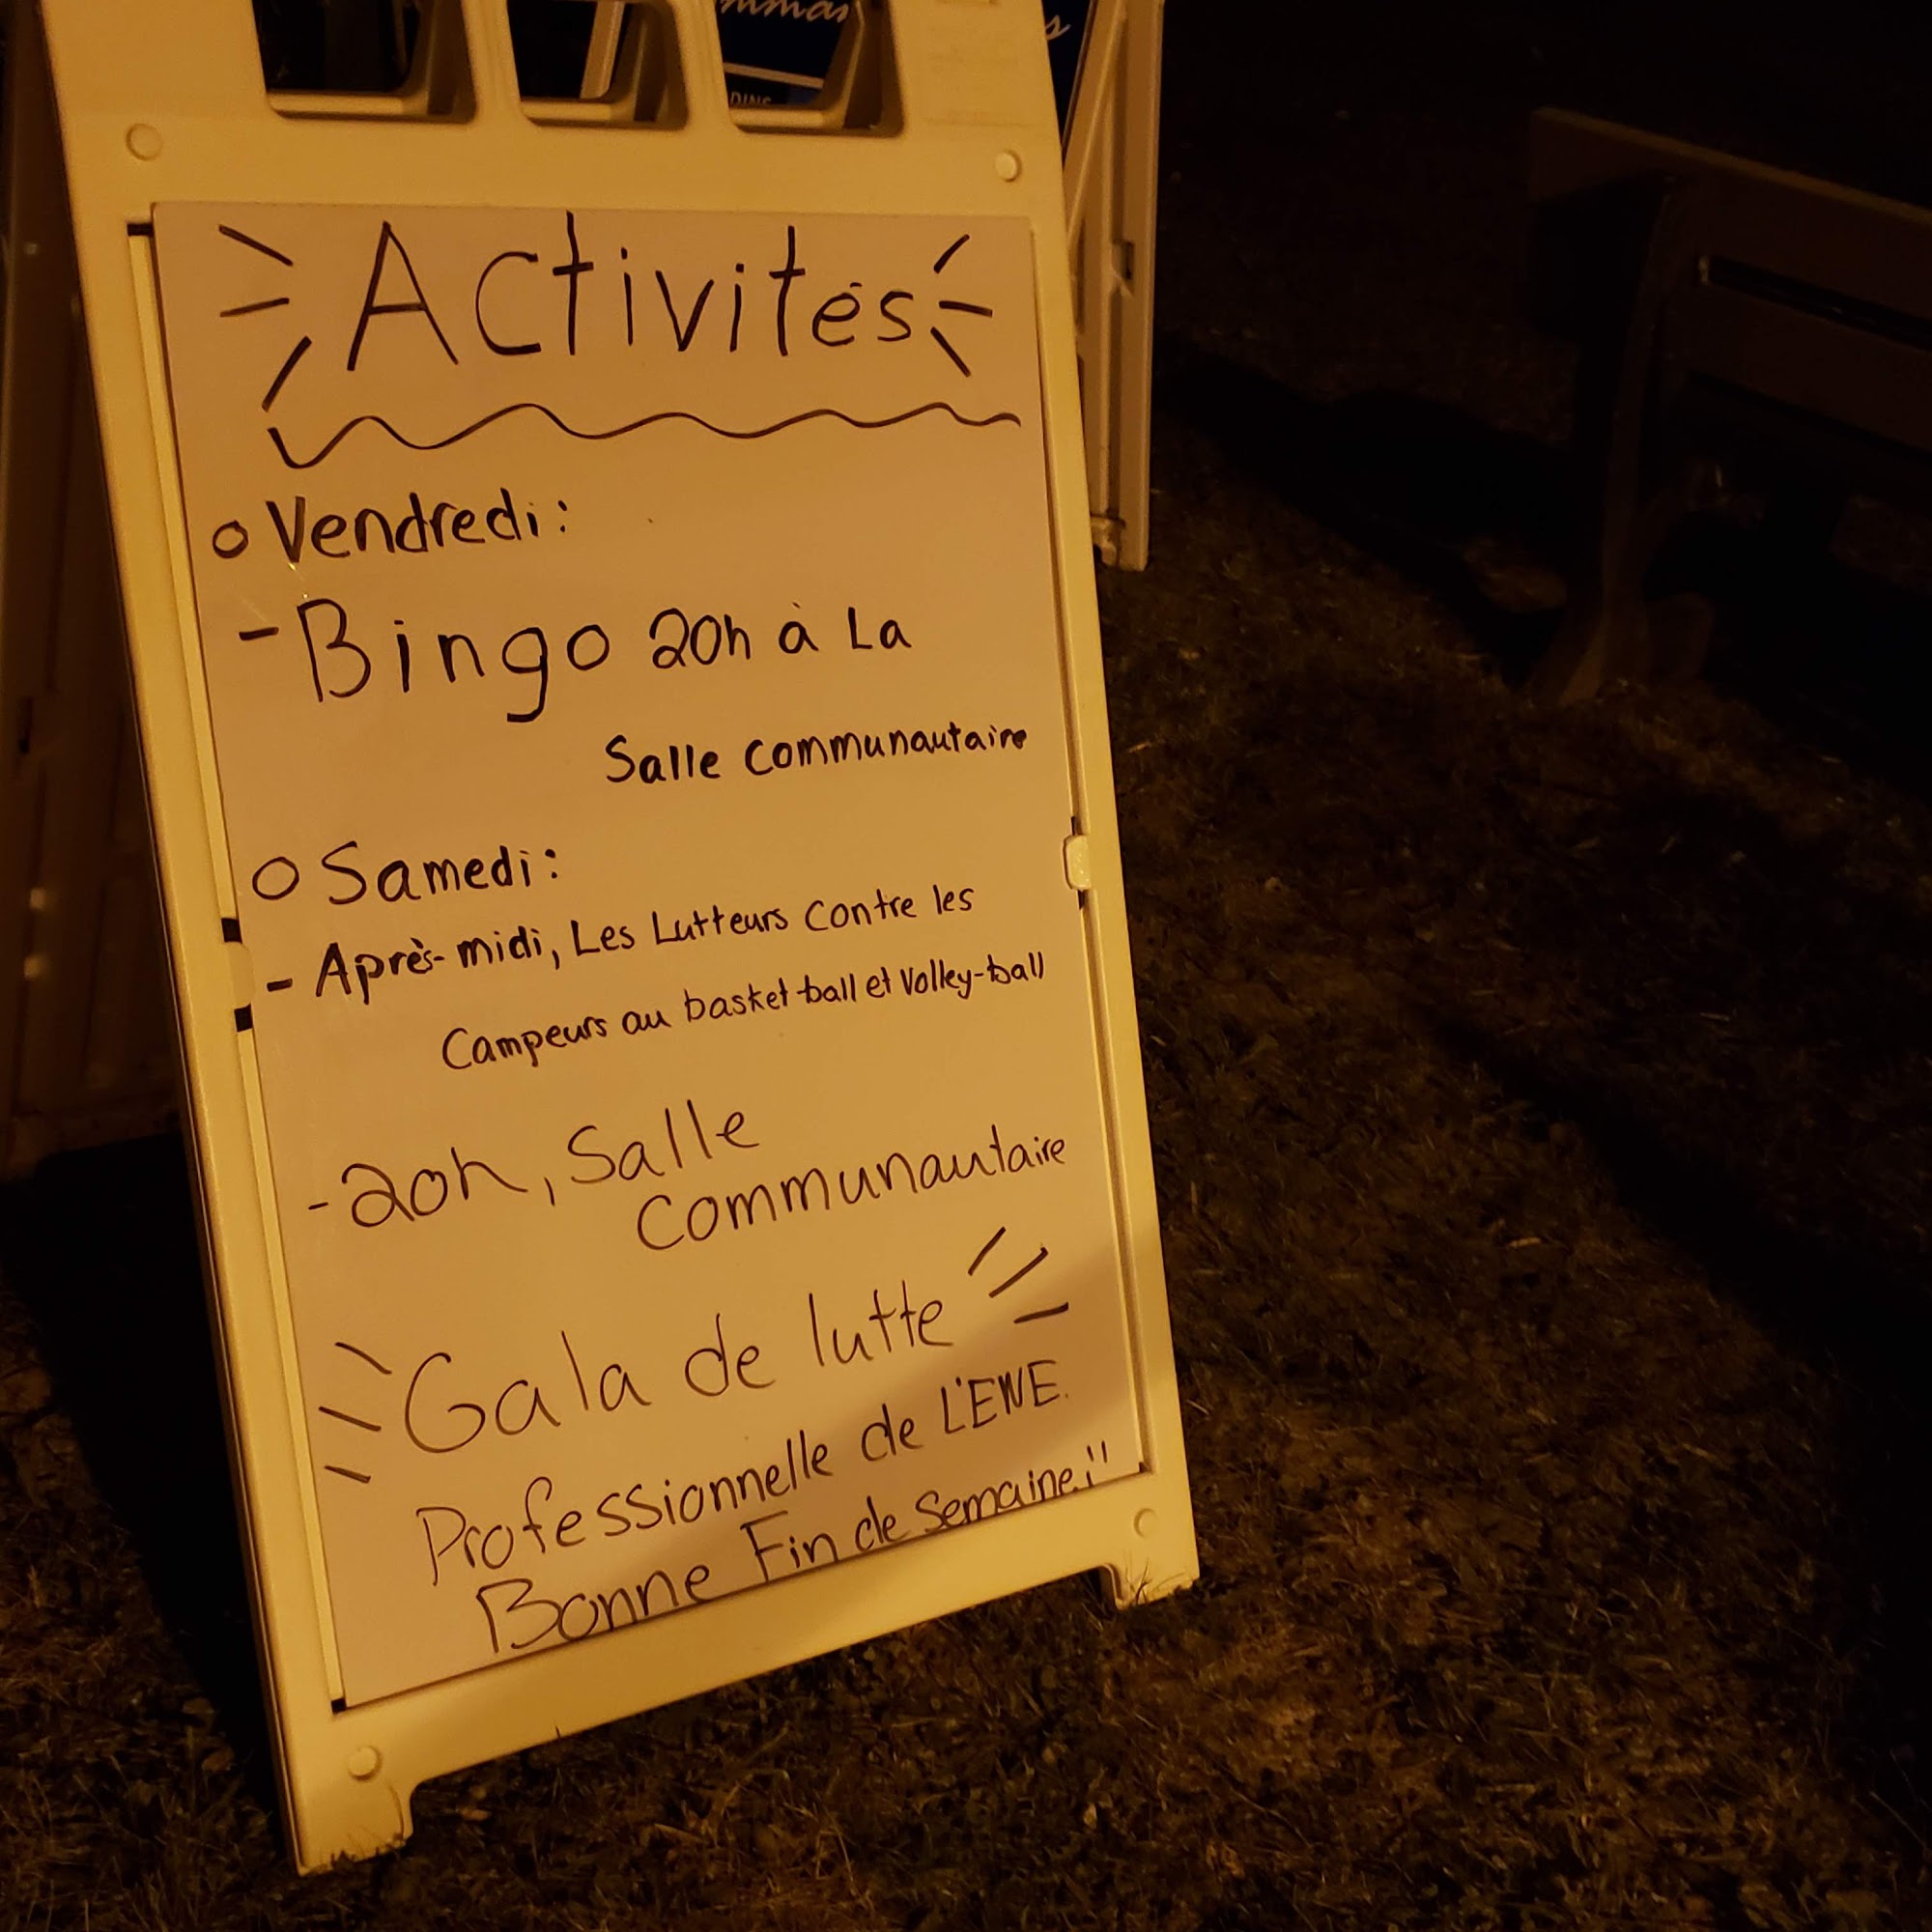 Activités
Vendredi:
- Bingo 20h à La
Salle communautaire
Samedi:
- Après-midi, Les Lutteurs contre les
Campeurs au basket-ball et Volley-ball
- 20h, Salle
Communautaire
Gala de lutte
Professionnelle de L'EWE.
Bonne Fin de semaine!!